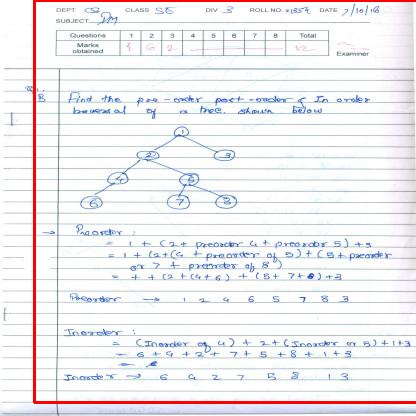 DEPT. CS CLASS SE DIV 3 ROLL NO. DATE 7/10/16
SUBJECT DM
Questions 1 2 3 4 5 6 7 8 Total
Marks obtained 1 G 2 12
Examiner
B Find the pre-order post-order & In order
traversal of a tree. shown below
1
2 3
4 5
6 7 8
→ Preorder :
= 1 + (2 + preorder 4 + preorder 5) + 3
= 1 + (2 + (4 + preorder of 5) + (5 + preorder
or 7 + preorder of 8)
= + + (2 + (4 + 6) + (5 + 7 + 8) + 3
Preorder → 1 2 4 6 5 7 8 3
Inorder :
= (Inorder of 4) + 2 + (Inorder or 5) + 1 + 3
= 6 + 4 + 2 + 7 + 5 + 8 + 1 + 3
Inorder → 6 4 2 7 5 8 1 3